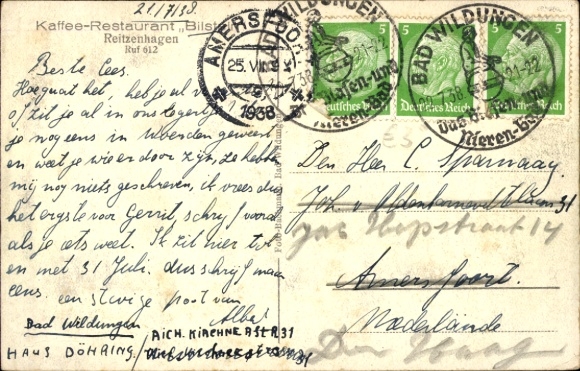 21/7/38
Kaffee-Restaurant „Bilst
Reitzenhagen
Ruf 612
Beste Cees.
Hoe gaat het, heb je al v
of zit je al in ons legertje?
je nog eens in Woerden geweest
en weet je wie er door zijn, ze hebben
mij nog niets geschreven, ik vrees dus
het ergste voor Gerrit, schrijf vooral
als je iets weet. Ik zit hier tot
en met 31 Juli. dus schrijf maar
eens. een stevige poot van
Albert
Bad Wildungen
RICH. KIRCHNERSTR. 31
HAUS DÖHRING/
31
AMERSFOORT
25.VII
1938
BAD WILDUNGEN
21-22
7.38
Blasen-und
Nieren-Bad
BAD WILDUNGEN
21-22
7.38
Das
Nieren-Bad
5
5 5
5
Deutsches Reich
Deutsches Reich
Deutsches Reich
Den Heer C. Sparnaay.
Joh. v Oldenbarneveltlaan 31
Jac Hopstraat 14
Amersfoort.
Nederlände
Den Haag